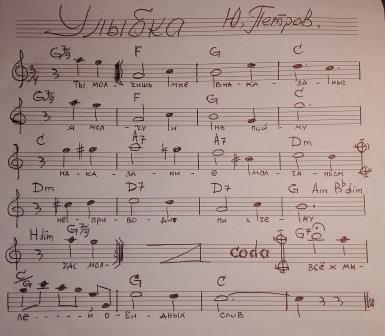 Улыбка Ю. Петров.
G7/9 F G C
3/4
ты мол - чишь мне в на - ка - за - нье
G7/9 F G C
я мол - чу и не пой - му
C A7 A7 Dm
на - ка - за - ни - е мол - ча - ньем
Dm D7 D7 G Am Bb dim
не при - во - дит ни к че - му
Hdim G7/9 Coda G7
час мол - всё ж ми -
C G C
ле - й о - би - дных слов